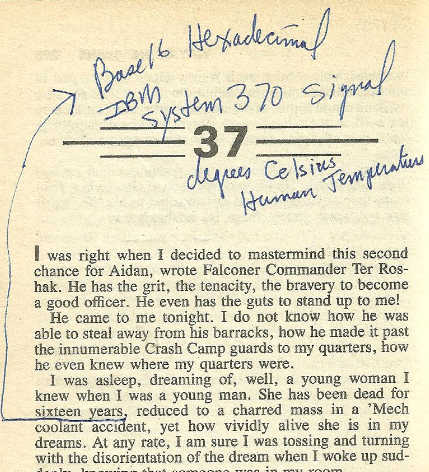 Base 16 Hexadecimal
IBM
System 370 Signal
37
degrees Celsius
Human Temperature
I was right when I decided to mastermind this second
chance for Aidan, wrote Falconer Commander Ter Ros-
hak. He has the grit, the tenacity, the bravery to become
a good officer. He even has the guts to stand up to me!
He came to me tonight. I do not know how he was
able to steal away from his barracks, how he made it past
the innumerable Crash Camp guards to my quarters, how
he even knew where my quarters were.
I was asleep, dreaming of, well, a young woman I
knew when I was a young man. She has been dead for
sixteen years, reduced to a charred mass in a 'Mech
coolant accident, yet how vividly alive she is in my
dreams. At any rate, I am sure I was tossing and turning
with the disorientation of the dream when I woke up sud-
denly, knowing that someone was in my room.